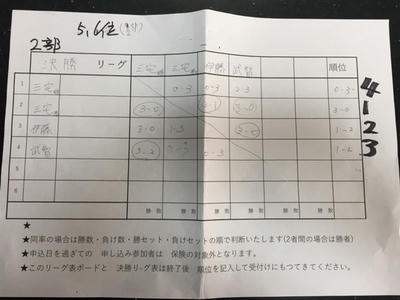 5,6位
2部
決勝 リーグ 三宅 三宅 伊藤 武智 順位
1 三宅 0-3 0-3 2-3 0-3 4
2 三宅 3-0 3-0 3-0 1
3 伊藤 3-0 1-3 1-2 2
4 武智 3-2 0-3 1-2 3
5
6
勝 敗 勝 敗 勝 敗 勝 敗 勝 敗 勝 敗
★
★同率の場合は勝数・負け数・勝セット・負けセットの順で判断いたします(2者間の場合は勝者)
★申込日を過ぎての 申し込み参加者は 保険の対象外となります。
★このリーグ表ボードと 決勝リーグ表は終了後 順位を記入して受付けにもつてきてください。